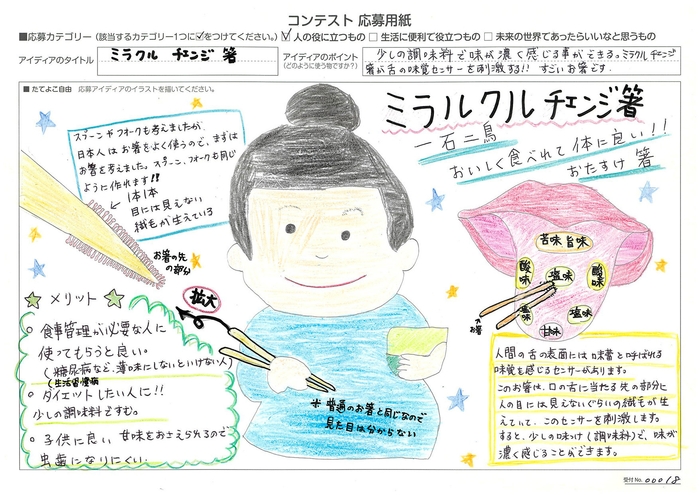 コンテスト 応募用紙
■応募カテゴリー(該当するカテゴリー1つに✓をつけてください。) ☑ 人の役に立つもの □ 生活に便利で役立つもの □ 未来の世界であったらいいなと思うもの
アイディアのタイトル
ミラクル チェンジ 箸
アイディアのポイント
(どのように使う物ですか?)
少しの調味料で味が濃く感じる事ができる。ミラクルチェンジ
箸が舌の味覚センサーを刺激する!! すごいお箸です.
■ たてよこ自由 応募アイディアのイラストを描いてください。
スプーンやフォークも考えましたが
日本人はお箸をよく使うので、まずは
お箸を考えました。スプーン、フォークも同じ
ように作れます!!
1本1本
目には見えない
繊毛が生えている
お箸の先
の部分
ミラルクルチェンジ箸
一石二鳥
おいしく食べれて体に良い!!
おたすけ 箸
苦味 旨味
酸味
塩味
酸味
塩味
塩味
甘味
お箸
☆ メリット ☆
。食事管理が必要な人に
使ってもらうと良い。
(糖尿病など、薄味にしないといけない人)
(生活習慣病
。ダイエットしたい人に!!
少しの調味料ですむ。
。子供に良い 甘味をおさえられるので
虫歯になりにくい.
拡大
※ 普通のお箸と同じなので
見た目は分からない
人間の舌の表面には味蕾と呼ばれる
味覚を感じるセンサーがあります。
このお箸は、口の舌に当たる先の部分に
人の目には見えないぐらいの繊毛が生
えていて、このセンサーを刺激します。
すると、少しの味つけ(調味料)で、味が
濃く感じることができます。
受付No. 00018